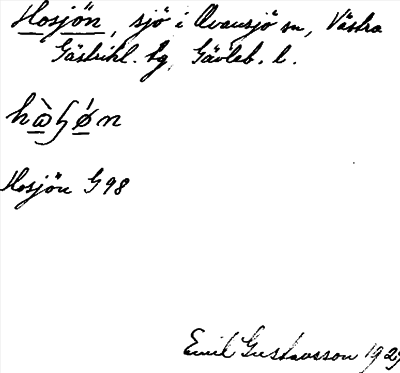 Hosjön, sjö i Ovansjö sn, Västra
Gästrikl. tg, Gävleb. l.
Hosjön G98
Emil Gustavsson 1929